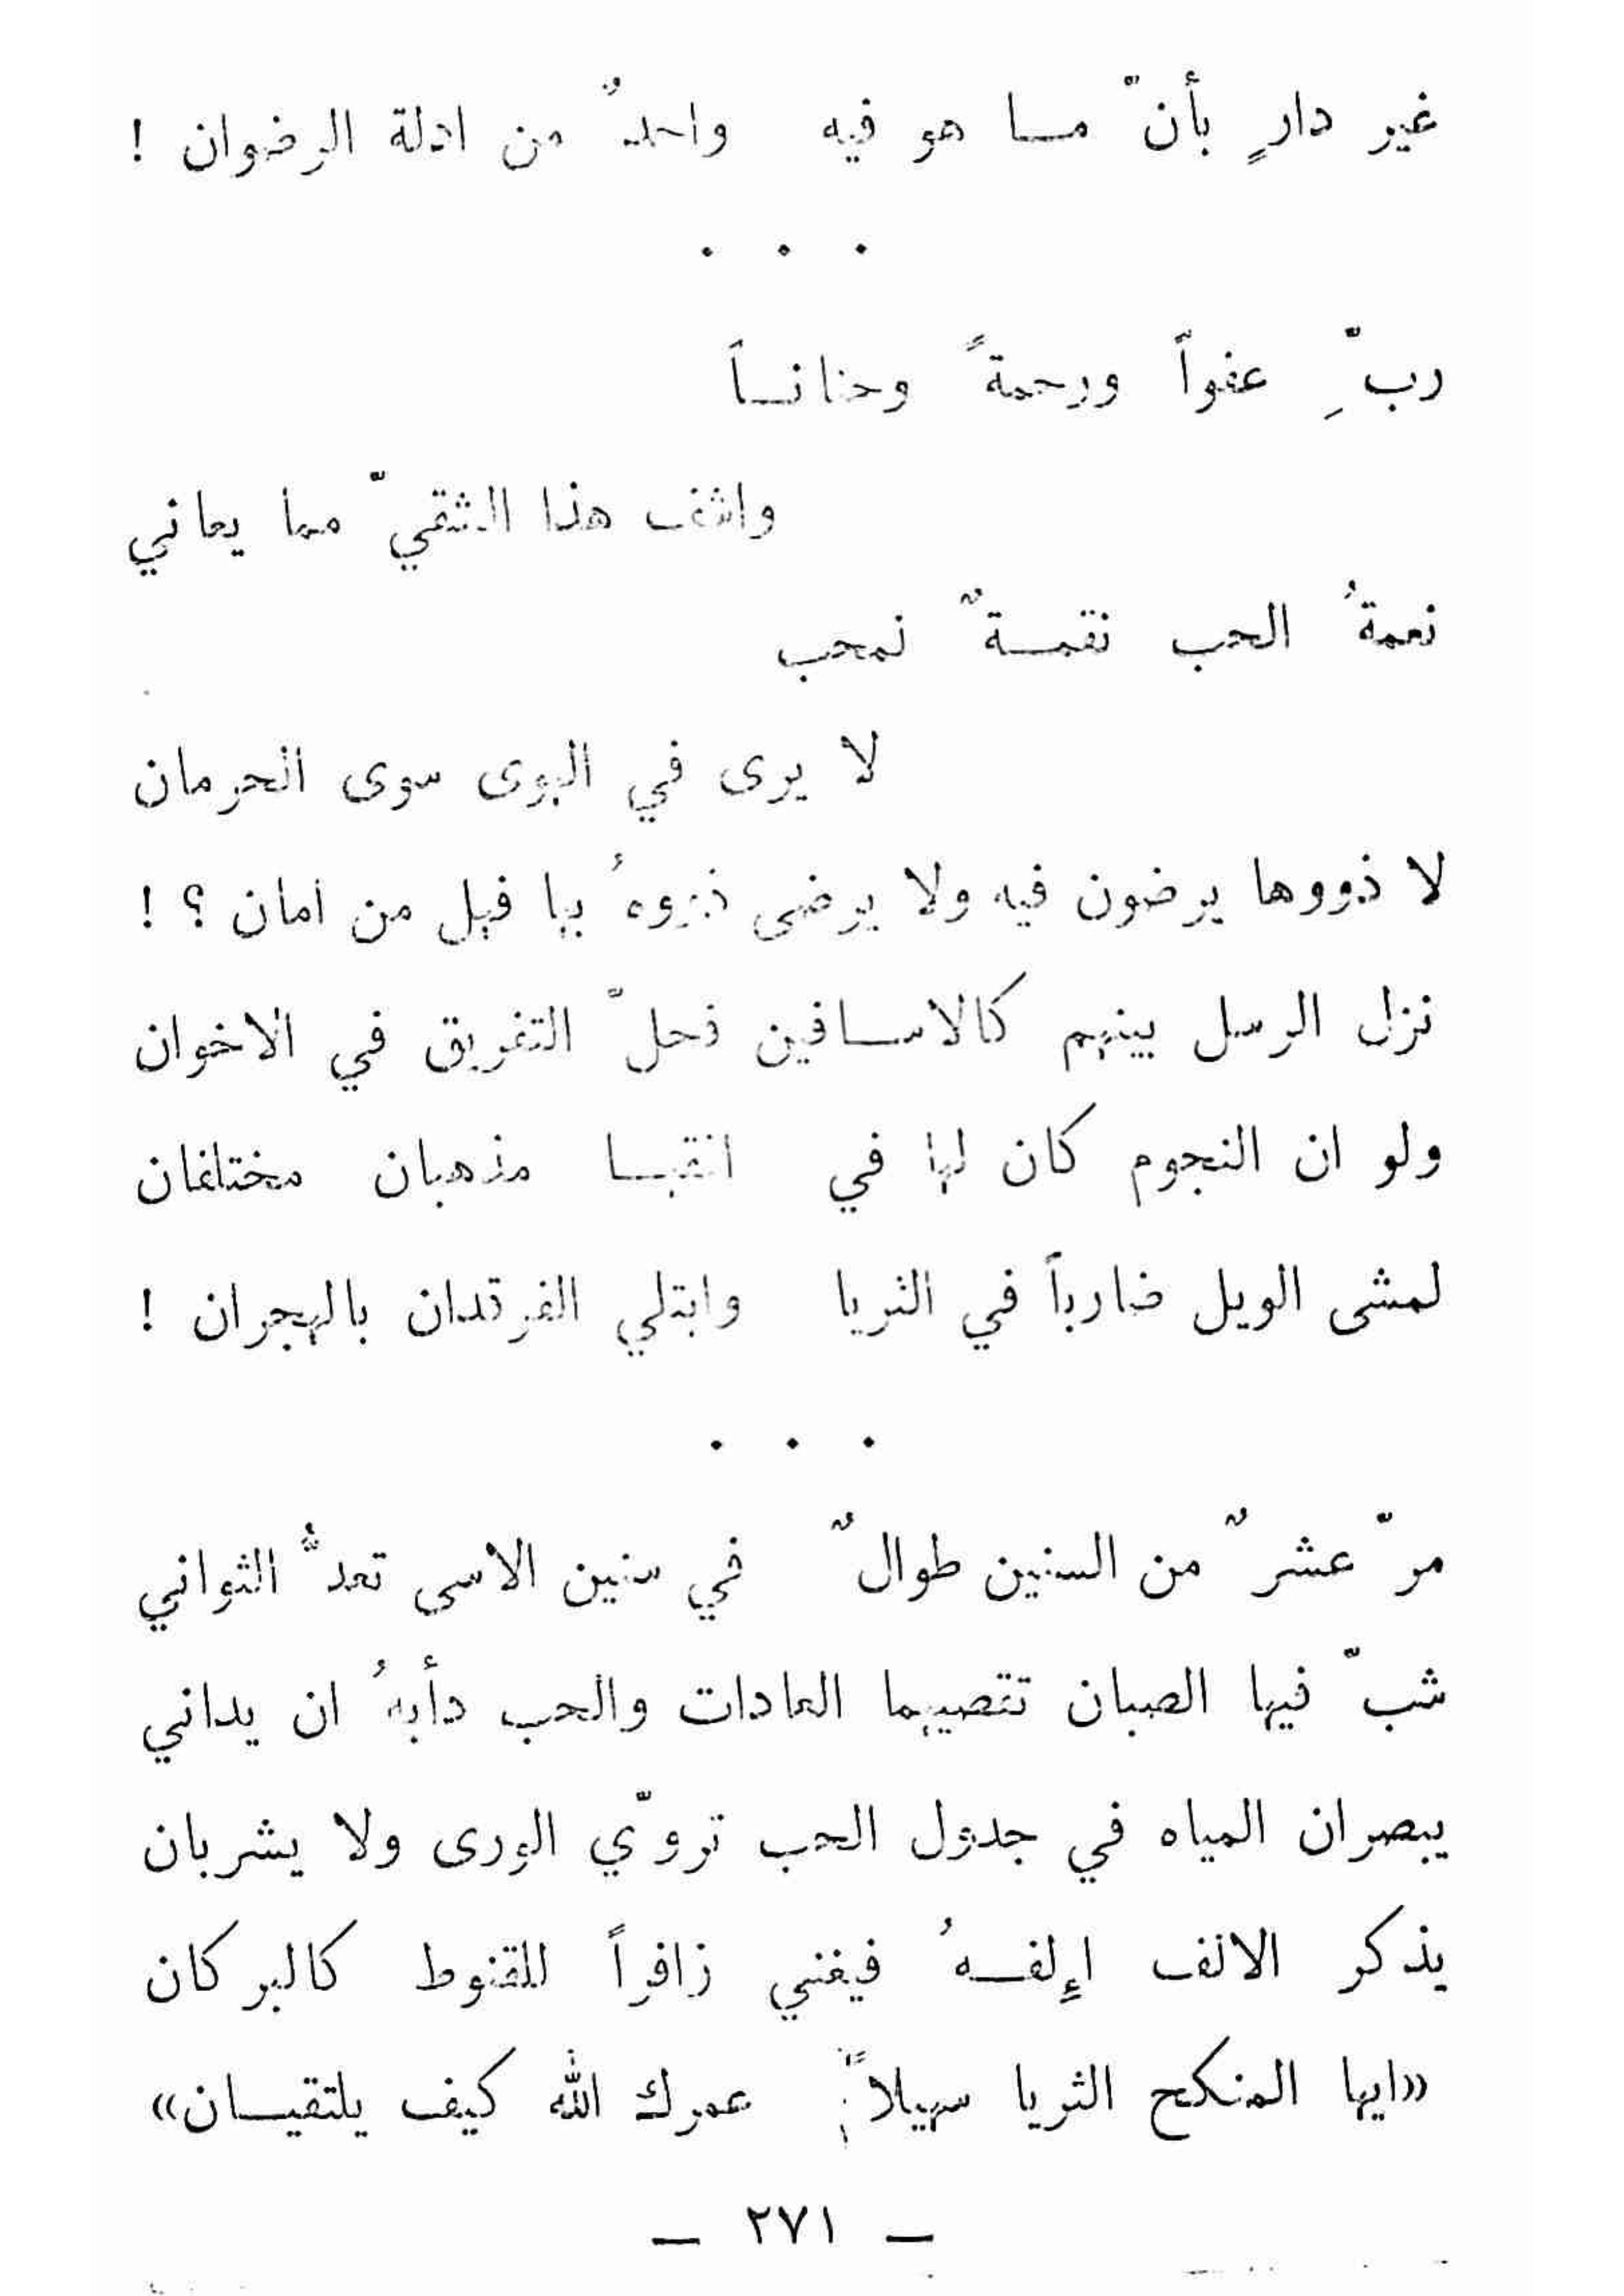 غير دارٍ بأنّ مـا هو فيه واحدٌ من ادلة الرضوان !
. . .
ربِّ عفواً ورحمةً وحنانـاً
واشف هذا الشقيّ مما يعاني
نعمةُ الحب نقمـةٌ لمحب
لا يرى في الهوى سوى الحرمان
لا ذووها يرضون فيه ولا يرضى ذووهُ بها فهل من امان ؟ !
نزل الرسل بينهم كالاسـافين فحلّ التفريق في الاخوان
ولو ان النجوم كان لها في مذهبان مختلفان
لمشى الويل ضارباً في الثريا وابتلي الفرقدان بالهجران !
. . .
مرّ عشرٌ من السنين طوالٌ في سنين الاسى تعدُّ الثواني
شبّ فيها الصبان تقصيهما العادات والحب دأبهُ ان يداني
يبصران المياه في جدول الحب تروّي الورى ولا يشربان
يذكر الالف إلفـهُ فيغني زافراً للقنوط كالبركان
«ايها المنكح الثريا سهيلاً عمرك الله كيف يلتقيـان»
— ٢٧١ —